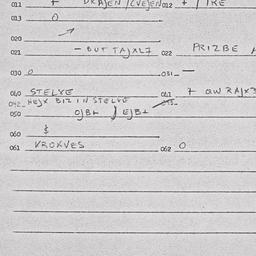 011 + DRAJEN/ZVEJEN 012 + / IKE
013 0
020
021 - BUT TAJXL7 022 PRIZBE
030 0 031 -
040 STELVE 041 7 QW RAJX
042 NEJX BIZ IN STELVE 043
050 OJB+ / EJB+
060 $
061 VROXVES 062 0